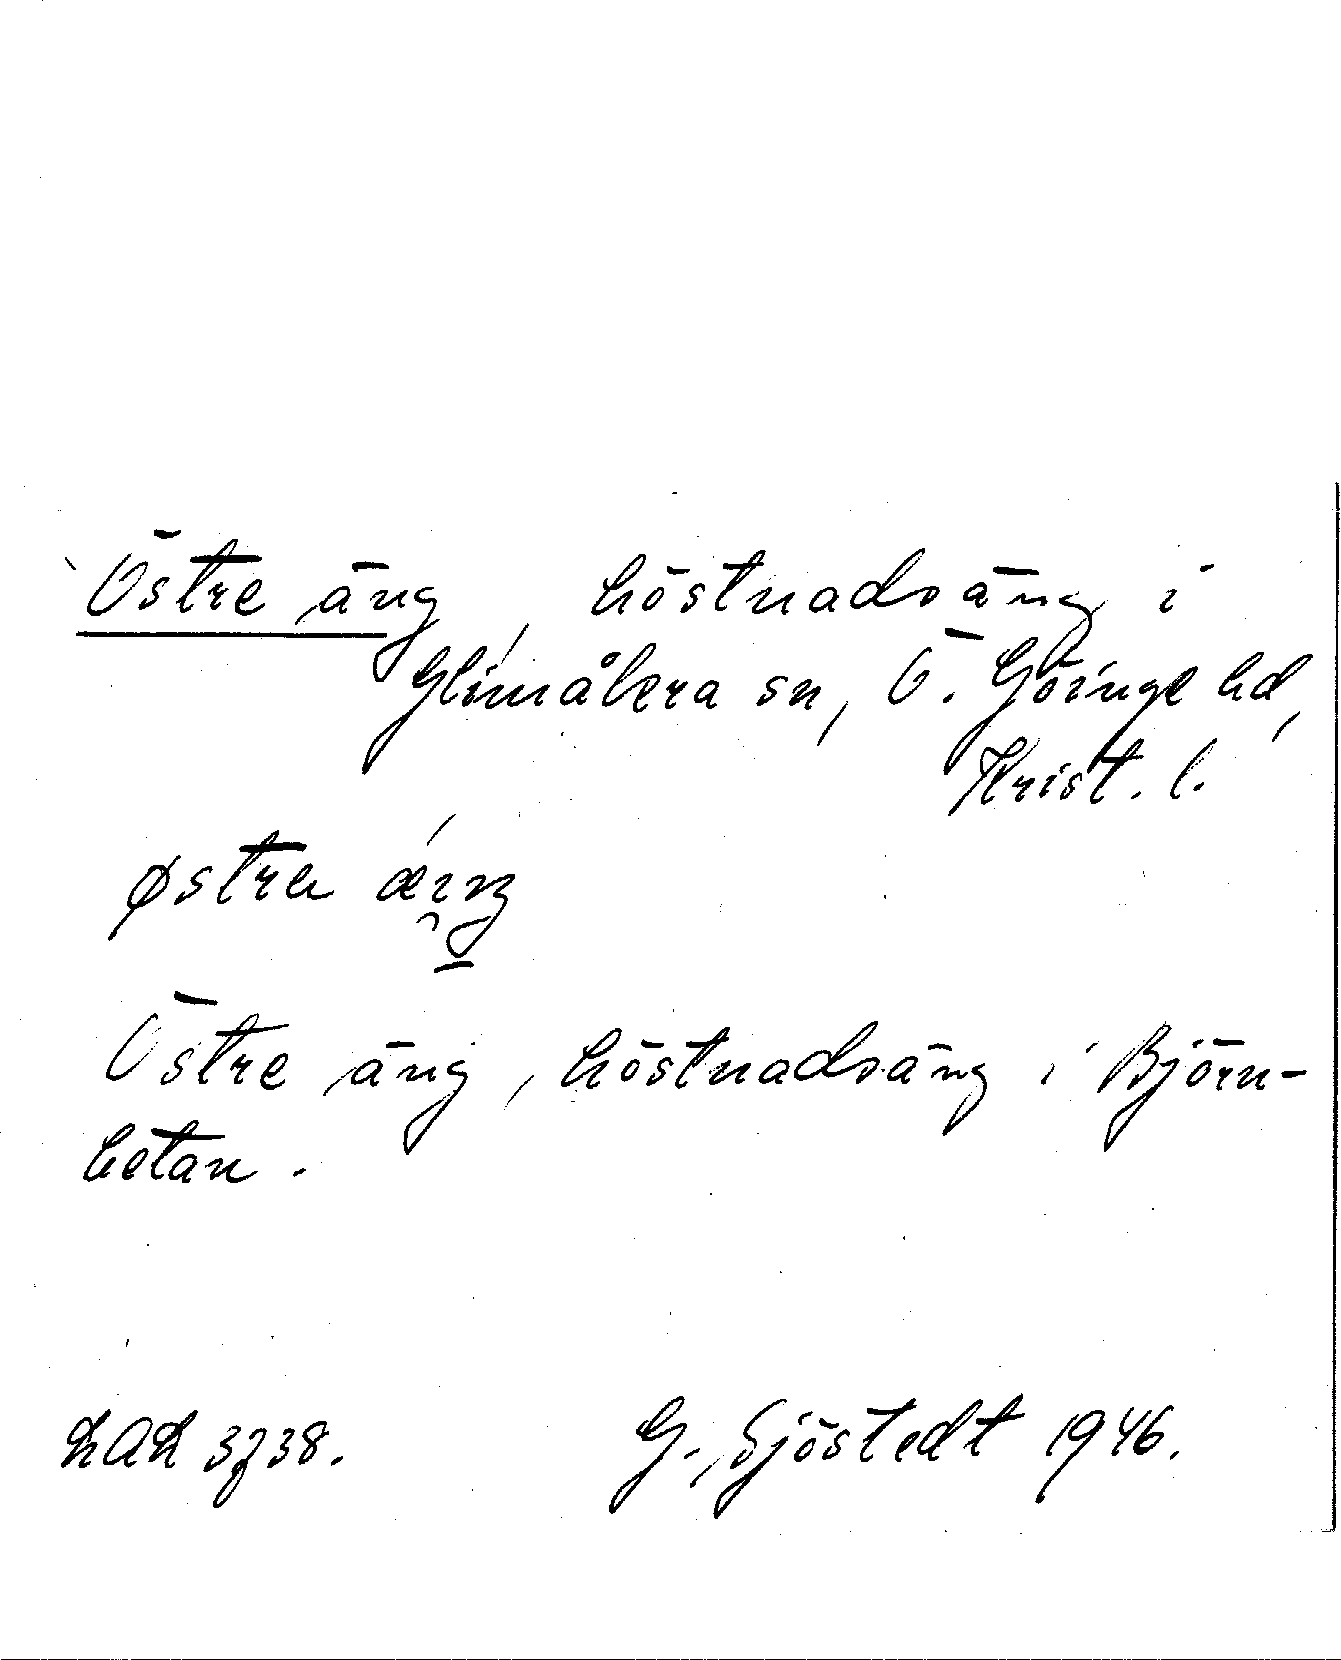 Östre äng, höstnadsäng i
Glimåkra sn, Ö. Göinge hd,
Krist. l.
Östre äng, höstnadsäng i Björn-
ketan.
LAL 3738. G. Sjöstedt 1946.